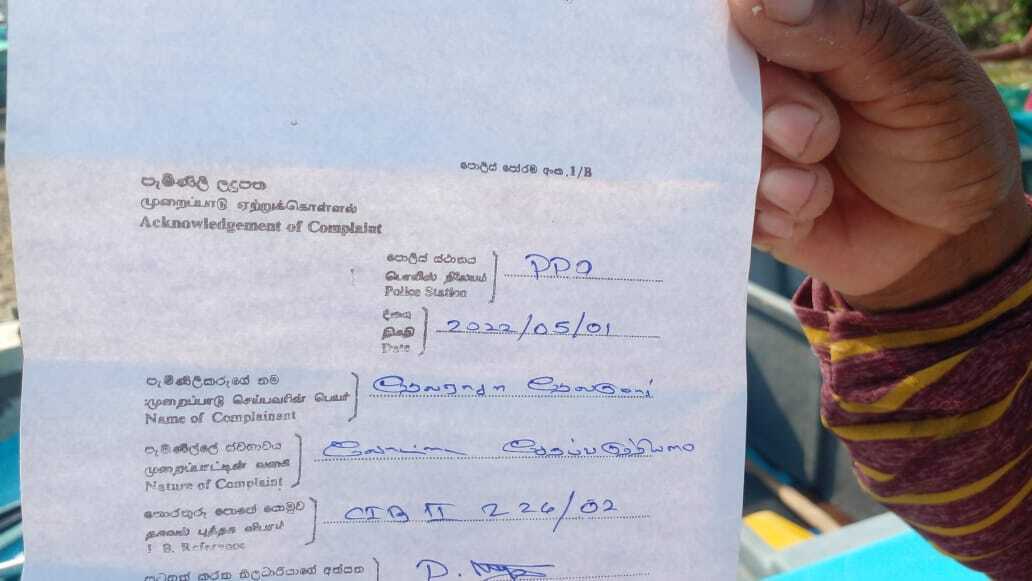 පොලිස් පෝරම අංක.1/B
පැමිණිලි ලදුපත
முறைப்பாடு ஏற்றுக்கொள்ளல்
Acknowledgement of Complaint
පොලිස් ස්ථානය
பொலிஸ் நிலையம்
Police Station
PPO
දිනය
திகதி
Date
2022/05/01
පැමිණිලිකරුගේ නම
முறைப்பாடு செய்பவரின் பெயர்
Name of Complainant
පැමිණිල්ලේ ස්වභාවය
முறைப்பாட்டின் வகை
Nature of Complaint
තොරතුරු පොතේ යොමුව
தகவல் புத்தக விபரம்
I. B. Reference
CIB II 226/02
සටහන් කරන නිලධාරියාගේ අත්සන